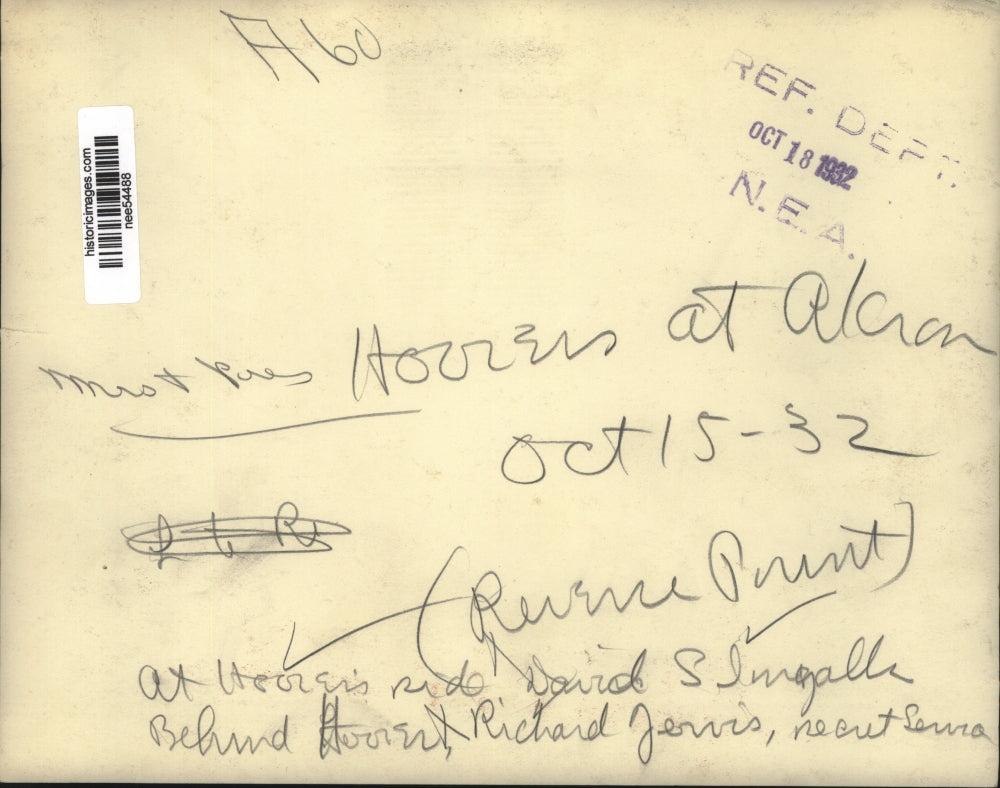 A60
REF. DEPT.
OCT 18 1932
N.E.A.
historicimages.com
nee54488
Hoovers at Akron
Oct 15-32
L to R
(Reverse Print)
At Hoover's side David S Ingalls
Behind Hoover, Richard Jervis, secret